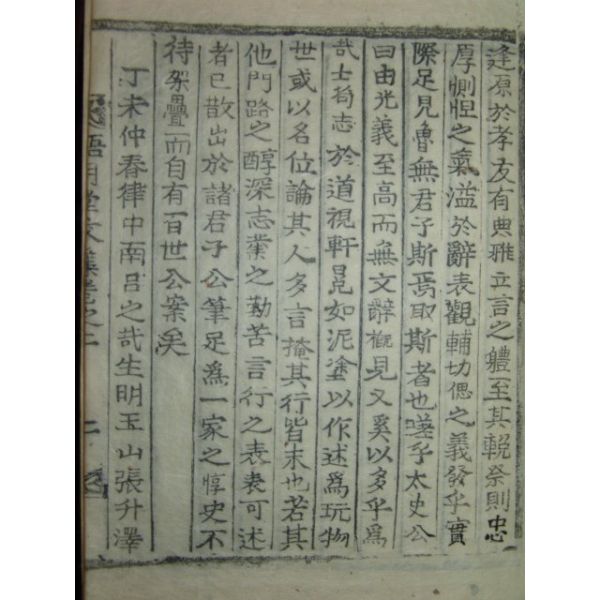 逢原於孝友有典雅立言之軆至其輓祭則忠
厚惻怛之氣溢於辭表觀輔切偲之義發乎實
際足見魯無君子斯焉取斯者也嗟乎太史公
曰由光義至高而無文辭槪見又奚以多乎爲
哉士苟志於道視軒冕如泥塗以作述爲玩物
世或以名位論其人多言掩其行皆末也若其
他門路之醇深志業之勤苦言行之表表可述
者已散出於諸君子公筆足爲一家之惇史不
待架疊而自有百世公案矣
丁未仲春律中南呂之哉生明玉山張升澤
梧月堂文集卷之二
二